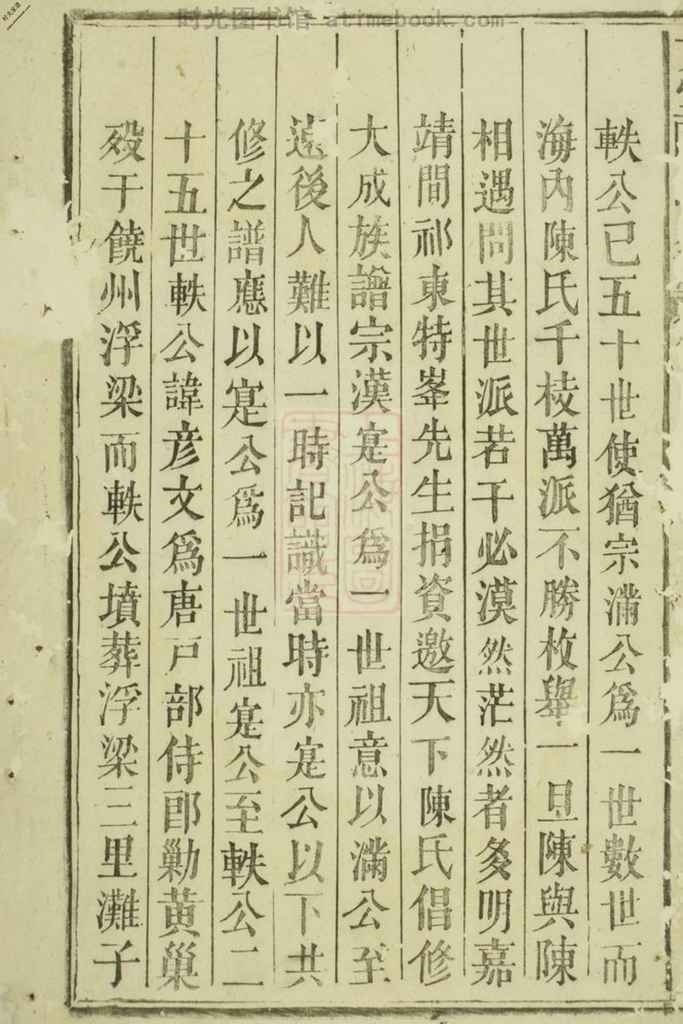 时光图书馆 atimebook.com
軼公已五十世使猶宗滿公爲一世數世而
海內陳氏千枝萬派不勝枚舉一旦陳與陳
相遇問其世派若干必漠然茫然者多明嘉
靖間祁東特峯先生捐資邀天下陳氏倡修
大成族譜宗漢寔公爲一世祖意以滿公至
遠後人難以一時記識當時亦寔公以下共
修之譜應以寔公爲一世祖寔公至軼公二
十五世軼公諱彦文爲唐戸部侍郎勦黄巢
殁于饒州浮梁而軼公墳葬浮梁三里灘子